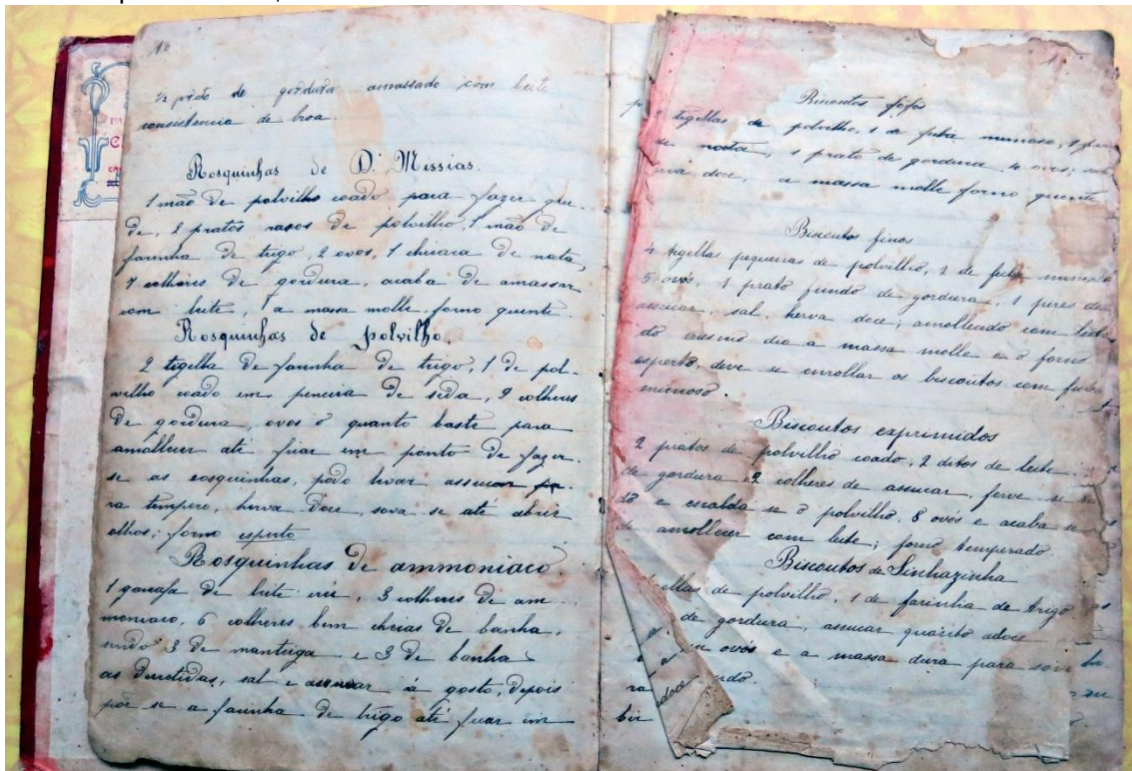 12
1/2 prato de gordura amassado com leite
consistencia de broa.
Rosquinhas de D. Missias.
1 mão de polvilho coado para fazer gru-
de, 2 pratos rasos de polvilho, 1 mão de
farinha de trigo, 2 ovos, 1 chicara de nata,
7 colheres de gordura, acaba de amassar
com leite, a massa molle, forno quente.
Rosquinhas de polvilho.
2 tigella de farinha de trigo, 1 de pol-
vilho coado em peneira de seda, 2 colheres
de gordura, ovos o quanto baste para
amollecer até ficar em ponto de fazer-
se as rosquinhas, pódo levar assucar pa-
ra tempero, herva doce, sova-se até abrir
olhos; forno esperto
Rosquinhas de ammoniaco
1 garrafa de leite crú, 3 colheres de am-
moniaco, 6 colheres bem cheias de banha,
sendo 3 de mantiga e 3 de banha
as derretidas, sal e assucar á gosto, depois
põe-se a farinha de trigo até ficar em
Biscoutos fofos
tigellas de polvilho, 1 de fubá mimoso, 1
de nata, 1 prato de gordura 4 ovos;
erva doce, a massa molle forno quente
Biscoutos finos
4 tigellas pequenas de polvilho, 2 de fubá mimoso
5 ovos, 1 prato fundo de gordura, 1 pires de
assucar, sal, herva doce; amollendo com leite
do mesmo dia a massa molle e o forno
esperto, deve se enrollar os biscoutos com fubá
mimoso.
Biscoutos exprimidos
2 pratos de polvilho coado, 2 ditos de leite
de gordura 2 colheres de assucar, ferve-se
e escalda se o polvilho. 8 ovos e acaba se
de amollecer com leite; forno temperado.
Biscoutos de Sinhazinha
de polvilho, 1 de farinha de trigo
de gordura, assucar quanto adoce
ovos e a massa dura para
doce